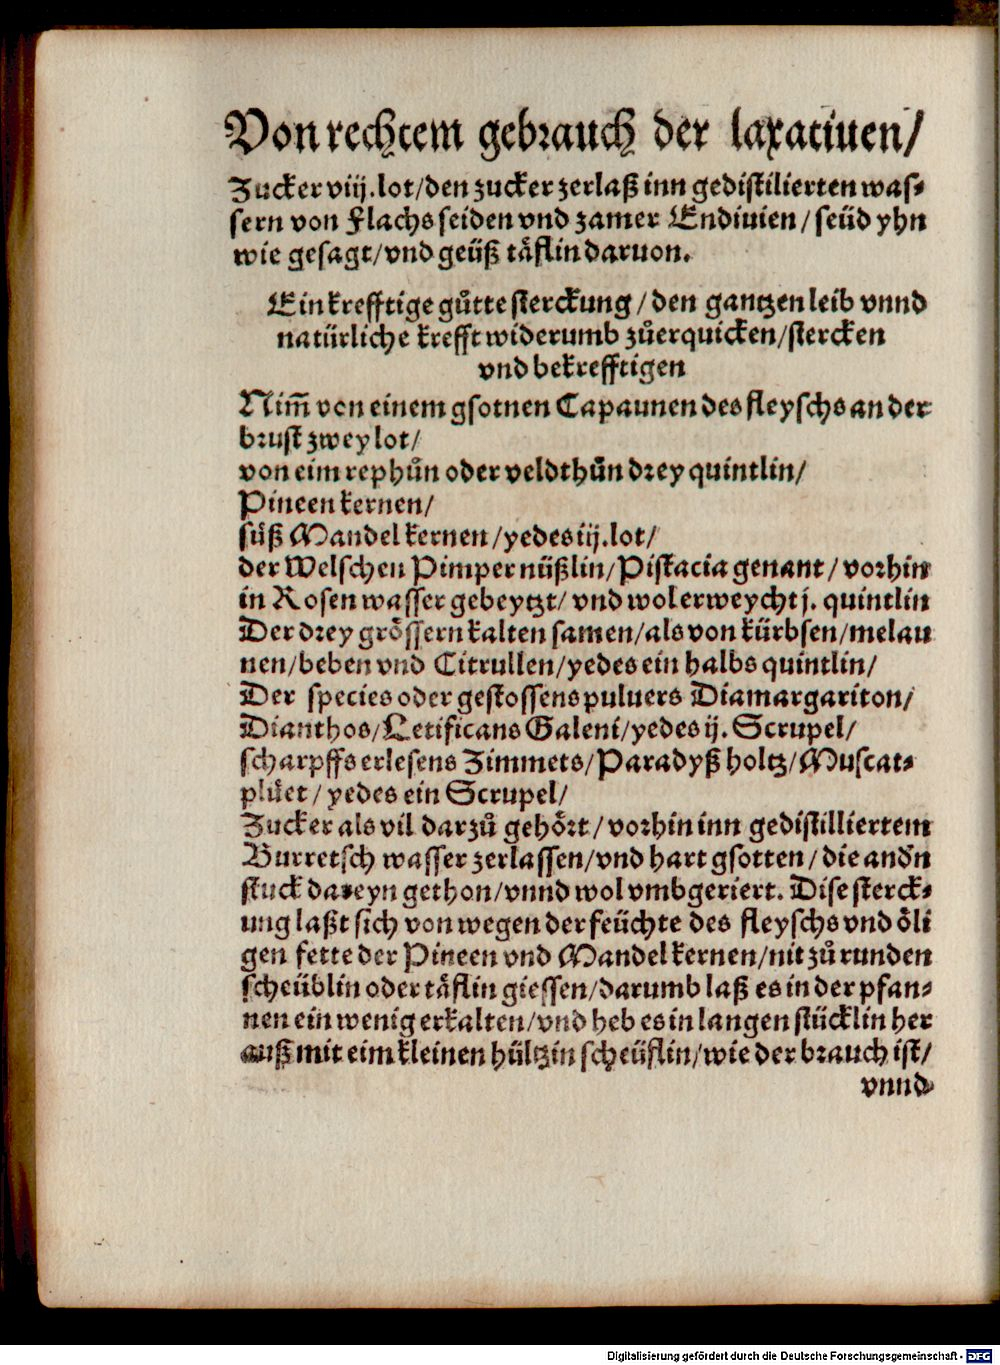 Von rechtem gebrauch der laxatiuen/
Zucker viij. lot/den zucker zerlaß inn gedistilierten was⸗
sern von Flachs seiden vnd zamer Endiuien/ seüd yhn
wie gesagt/vnd geüß täflin daruon.
Ein krefftige gůtte sterckung/den gantzen leib vnnd
natürliche krefft widerumb zůerquicken/stercken
vnd bekrefftigen
Nim̃ von einem gsotnen Capaunen des fleyschs an der
brust zwey lot/
von eim rephůn oder veldthůn drey quintlin/
Pineen kernen/
süß Mandel kernen/yedes iij. lot/
der Welschen Pimpernüßlin/Pistacia genant/ vorhin
in Rosen wasser gebeytzt/ vnd wol erweycht j. quintlin
Der drey grössern kalten samen/als von kürbsen/melau
nen/beben vnd Citrullen/yedes ein halbs quintlin/
Der species oder gestossens puluers Diamargariton/
Dianthos/Letificans Galeni/yedes ij. Scrupel/
scharpffs erlesens Zimmets/Paradyß holtz/Muscat⸗
plüet/ yedes ein Scrupel/
Zucker als vil darzů gehört/ vorhin inn gedistilliertem
Burretsch wasser zerlassen/vnd hart gsotten/ die andn
stuck dareyn gethon/vnnd wol vmbgeriert. Dise sterck⸗
ung laßt sich von wegen der feüchte des fleyschs vnd öli
gen fette der Pineen vnd Mandel kernen/nit zů runden
scheüblin oder täflin giessen/darumb laß es in der pfan⸗
nen ein wenig erkalten/vnd heb es in langen stücklin her
auß mit eim kleinen hültzin scheüflin/wie der brauch ist/
vnnd
Digitalisierung gefördert durch die Deutsche Forschungsgemeinschaft - DFG